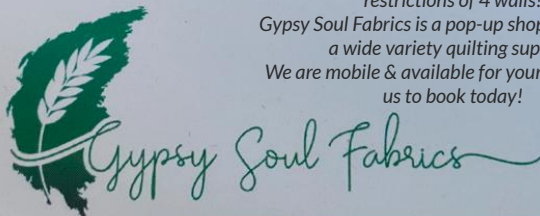 restrictions of 4 walls
Gypsy Soul Fabrics is a pop-up shop
a wide variety quilting sup
We are mobile & available for your
us to book today!
Gypsy Soul Fabrics